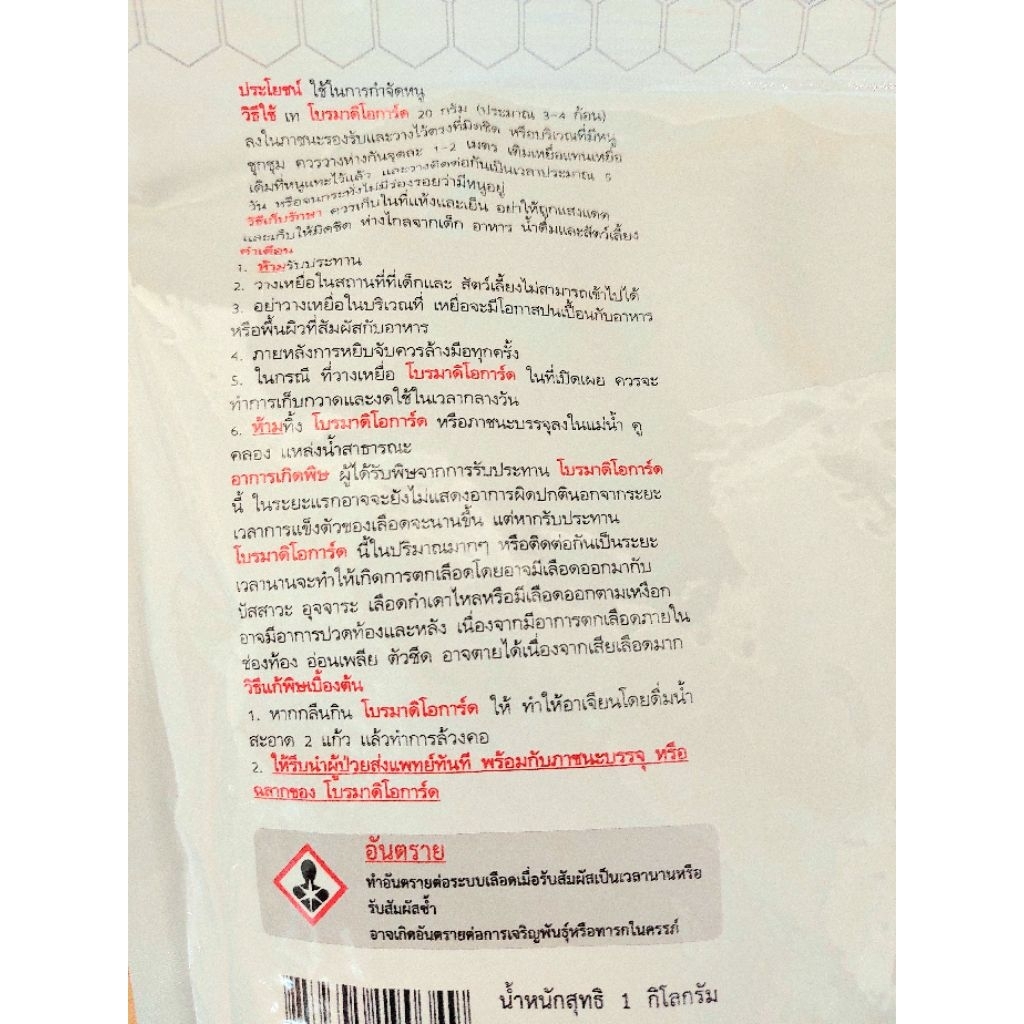 ประโยชน์ ใช้ในการกำจัดหนู
วิธีใช้ เท โบรมาดิโอการ์ด 20 กรัม (ประมาณ 3-4 ก้อน)
ลงในภาชนะรองรับและวางไว้ตรงที่มิดชิด หรือบริเวณที่มีหนู
ชุกชุม ควรวางห่างกันจุดละ 1-2 เมตร เติมเหยื่อแทนเหยื่อ
เดิมที่หนูแทะไว้แล้ว และวางติดต่อกันเป็นเวลาประมาณ 5
วัน หรือจนกระทั่งไม่มีร่องรอยว่ามีหนูอยู่
วิธีเก็บรักษา ควรเก็บในที่แห้งและเย็น อย่าให้ถูกแสงแดด
และเก็บให้มิดชิด ห่างไกลจากเด็ก อาหาร น้ำดื่มและสัตว์เลี้ยง
คำเตือน
1. ห้ามรับประทาน
2. วางเหยื่อในสถานที่ที่เด็กและ สัตว์เลี้ยงไม่สามารถเข้าไปได้
3. อย่าวางเหยื่อในบริเวณที่ เหยื่อจะมีโอกาสปนเปื้อนกับอาหาร
หรือพื้นผิวที่สัมผัสกับอาหาร
4. ภายหลังการหยิบจับควรล้างมือทุกครั้ง
5. ในกรณี ที่วางเหยื่อ โบรมาดิโอการ์ด ในที่เปิดเผย ควรจะ
ทำการเก็บกวาดและงดใช้ในเวลากลางวัน
6. ห้ามทิ้ง โบรมาดิโอการ์ด หรือภาชนะบรรจุลงในแม่น้ำ คู
คลอง แหล่งน้ำสาธารณะ
อาการเกิดพิษ ผู้ได้รับพิษจากการรับประทาน โบรมาดิโอการ์ด
นี้ ในระยะแรกอาจจะยังไม่แสดงอาการผิดปกตินอกจากระยะ
เวลาการแข็งตัวของเลือดจะนานขึ้น แต่หากรับประทาน
โบรมาดิโอการ์ด นี้ในปริมาณมากๆ หรือติดต่อกันเป็นระยะ
เวลานานจะทำให้เกิดการตกเลือดโดยอาจมีเลือดออกมากับ
ปัสสาวะ อุจจาระ เลือดกำเดาไหลหรือมีเลือดออกตามเหงือก
อาจมีอาการปวดท้องและหลัง เนื่องจากมีอาการตกเลือดภายใน
ช่องท้อง อ่อนเพลีย ตัวซีด อาจตายได้เนื่องจากเสียเลือดมาก
วิธีแก้พิษเบื้องต้น
1. หากกลืนกิน โบรมาดิโอการ์ด ให้ ทำให้อาเจียนโดยดื่มน้ำ
สะอาด 2 แก้ว แล้วทำการล้วงคอ
2. ให้รีบนำผู้ป่วยส่งแพทย์ทันที พร้อมกับภาชนะบรรจุ หรือ
ฉลากของ โบรมาดิโอการ์ด
อันตราย
ทำอันตรายต่อระบบเลือดเมื่อรับสัมผัสเป็นเวลานานหรือ
รับสัมผัสซ้ำ
อาจเกิดอันตรายต่อการเจริญพันธุ์หรือทารกในครรภ์
น้ำหนักสุทธิ 1 กิโลกรัม